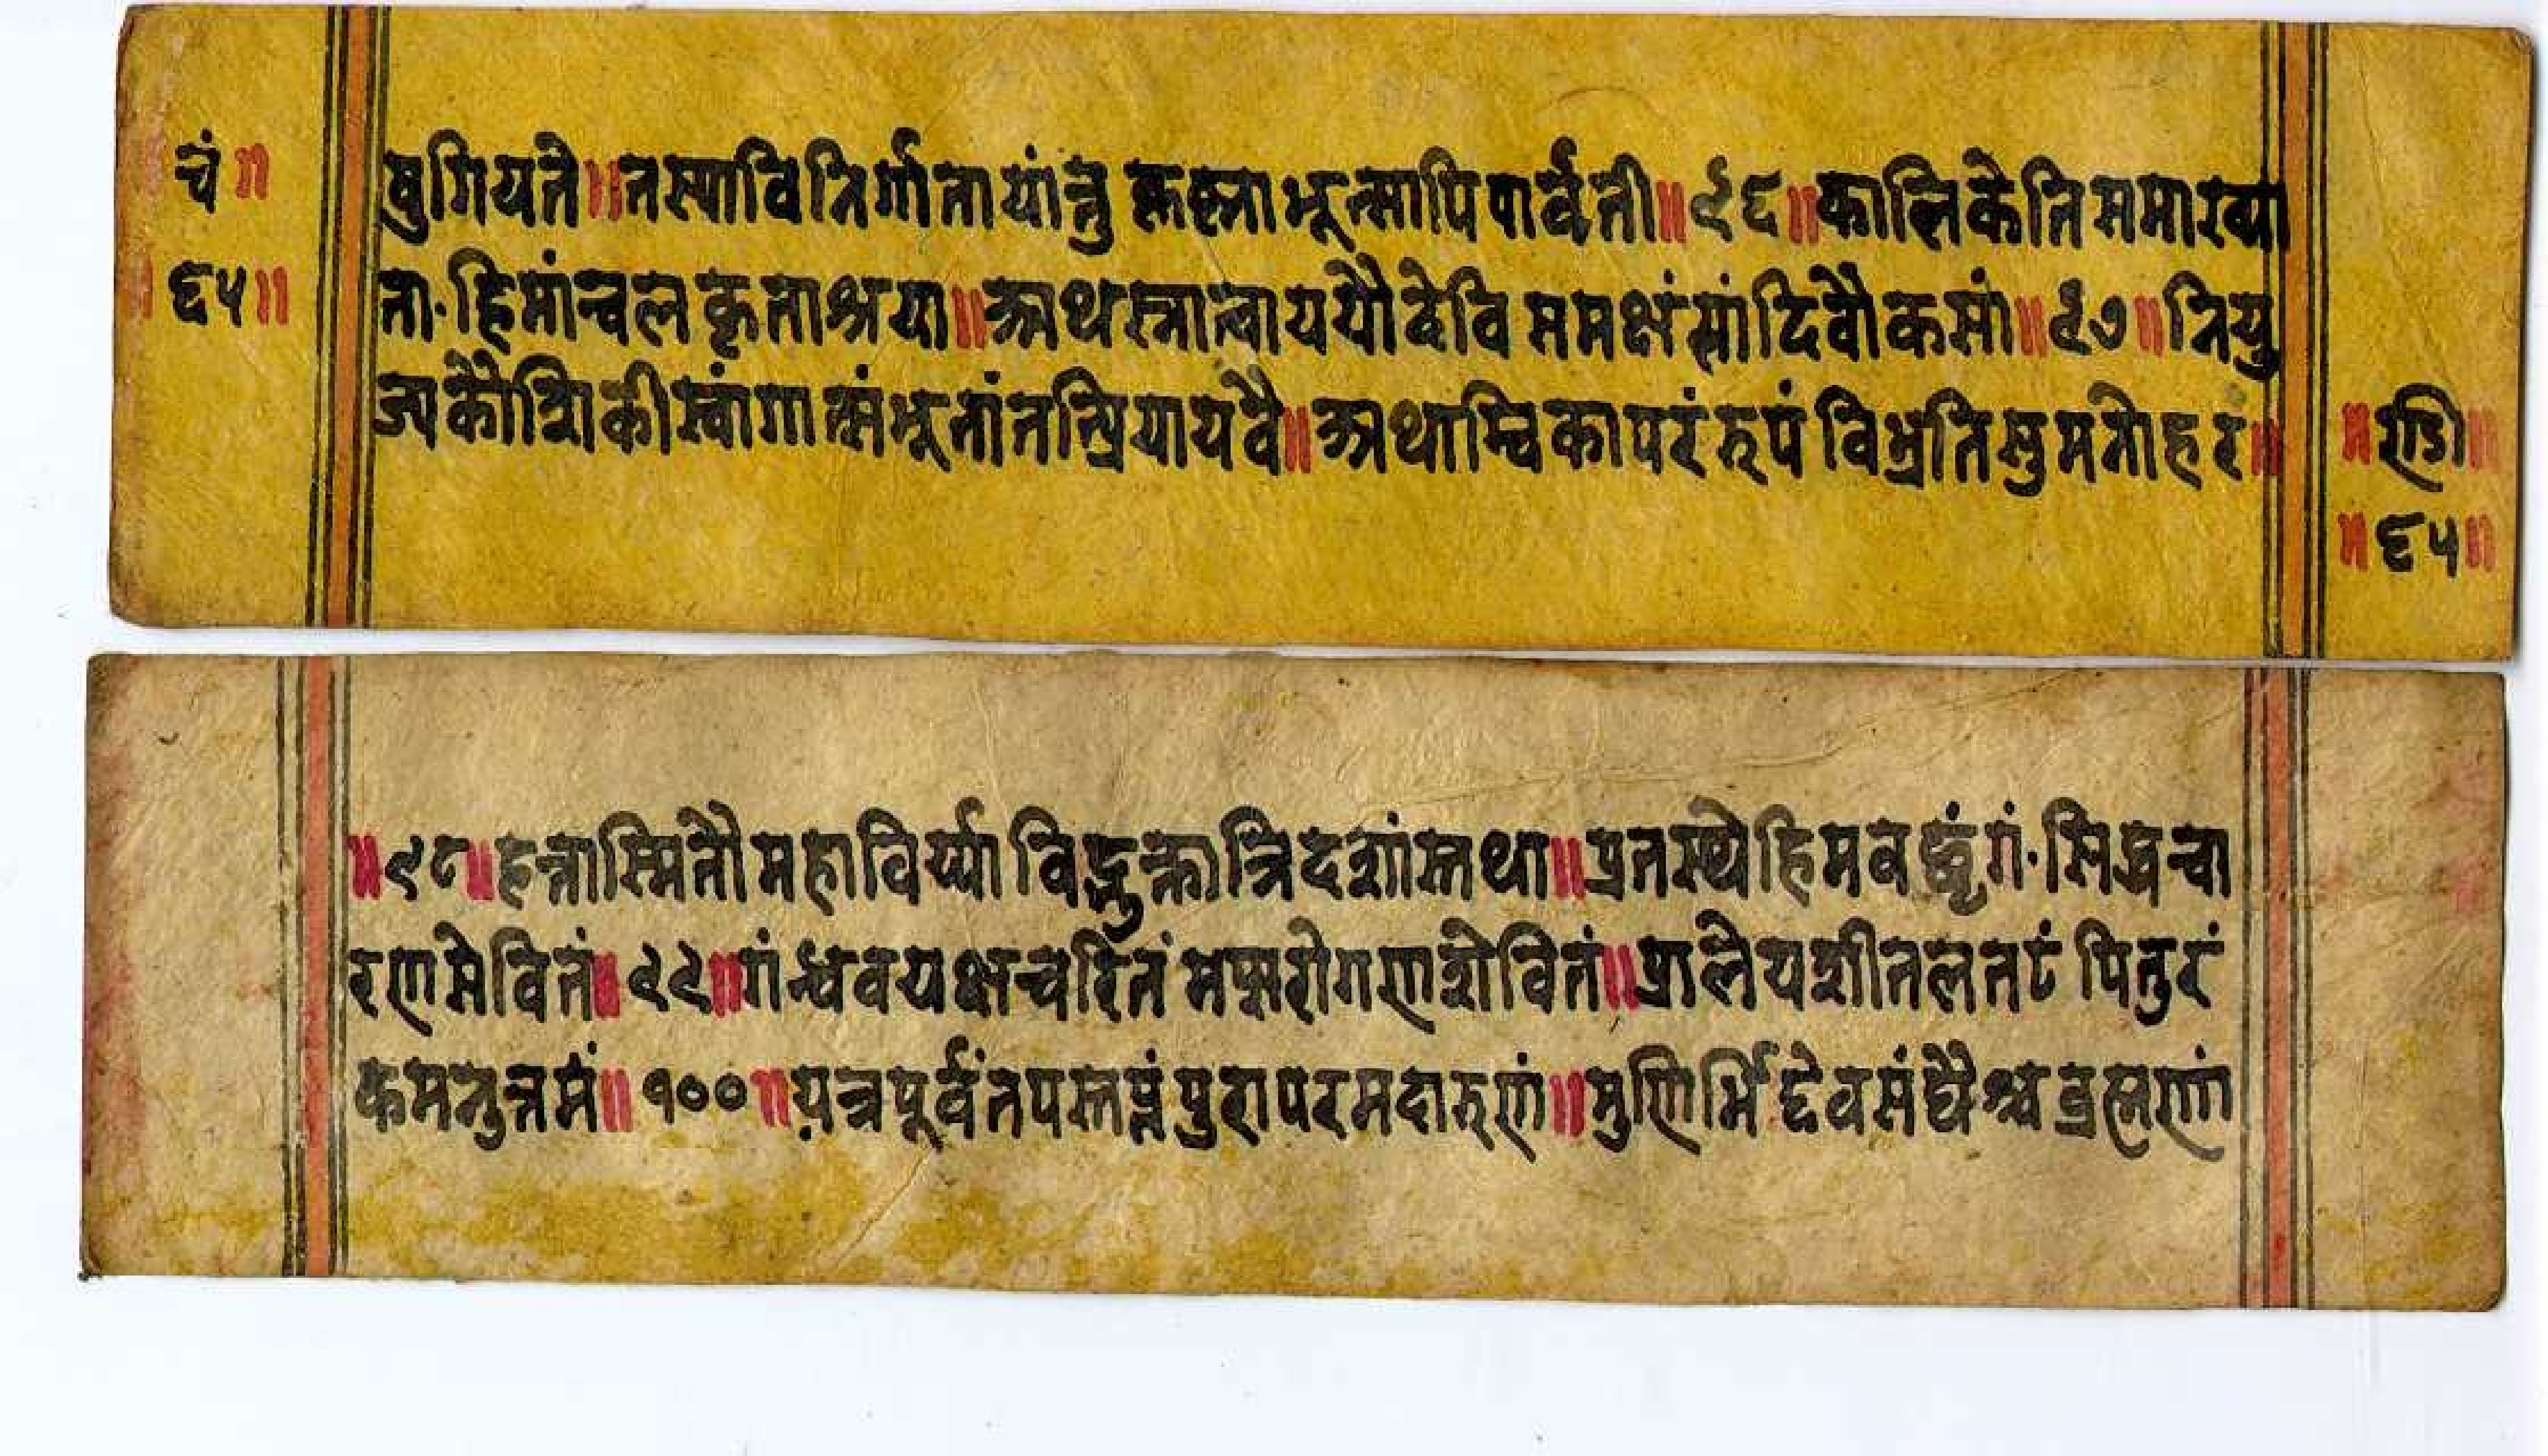 चं॥
॥६५॥
षुगियते॥तस्यावित्रिर्गातायांन्तु कृष्णाभूत्सापिपार्वती॥९६॥कालिकेतिसमाख्या
ता·हिमांचलकृताश्रया॥अथस्त्रात्वाययौदेवि समक्षंसांदिवौकसां॥९७॥नियु
ज्यकौशिकीस्वांगात्संभूतांतत्प्रियायवै॥अथाम्बिकापरंरुपं विभ्रतिसुमनोहर॥
॥एडि॥
॥६५॥
॥९८॥हत्वास्मितौमहाविर्य्या विद्रुत्कात्रिदशांस्तथा॥प्रतस्थेहिमवछृंगं·सिद्धचा
रणसेवितं॥९९॥गंन्धवयक्षचरितं मप्सरोगणशेवितं॥प्रालेयशीतलतटं पितुरं
कमनुत्तमं॥१००॥यत्रपूर्वंतपस्तप्तंपुरापरमदारुणं॥मुणिर्भिर्द्देवसंघैश्च ब्रह्मणां